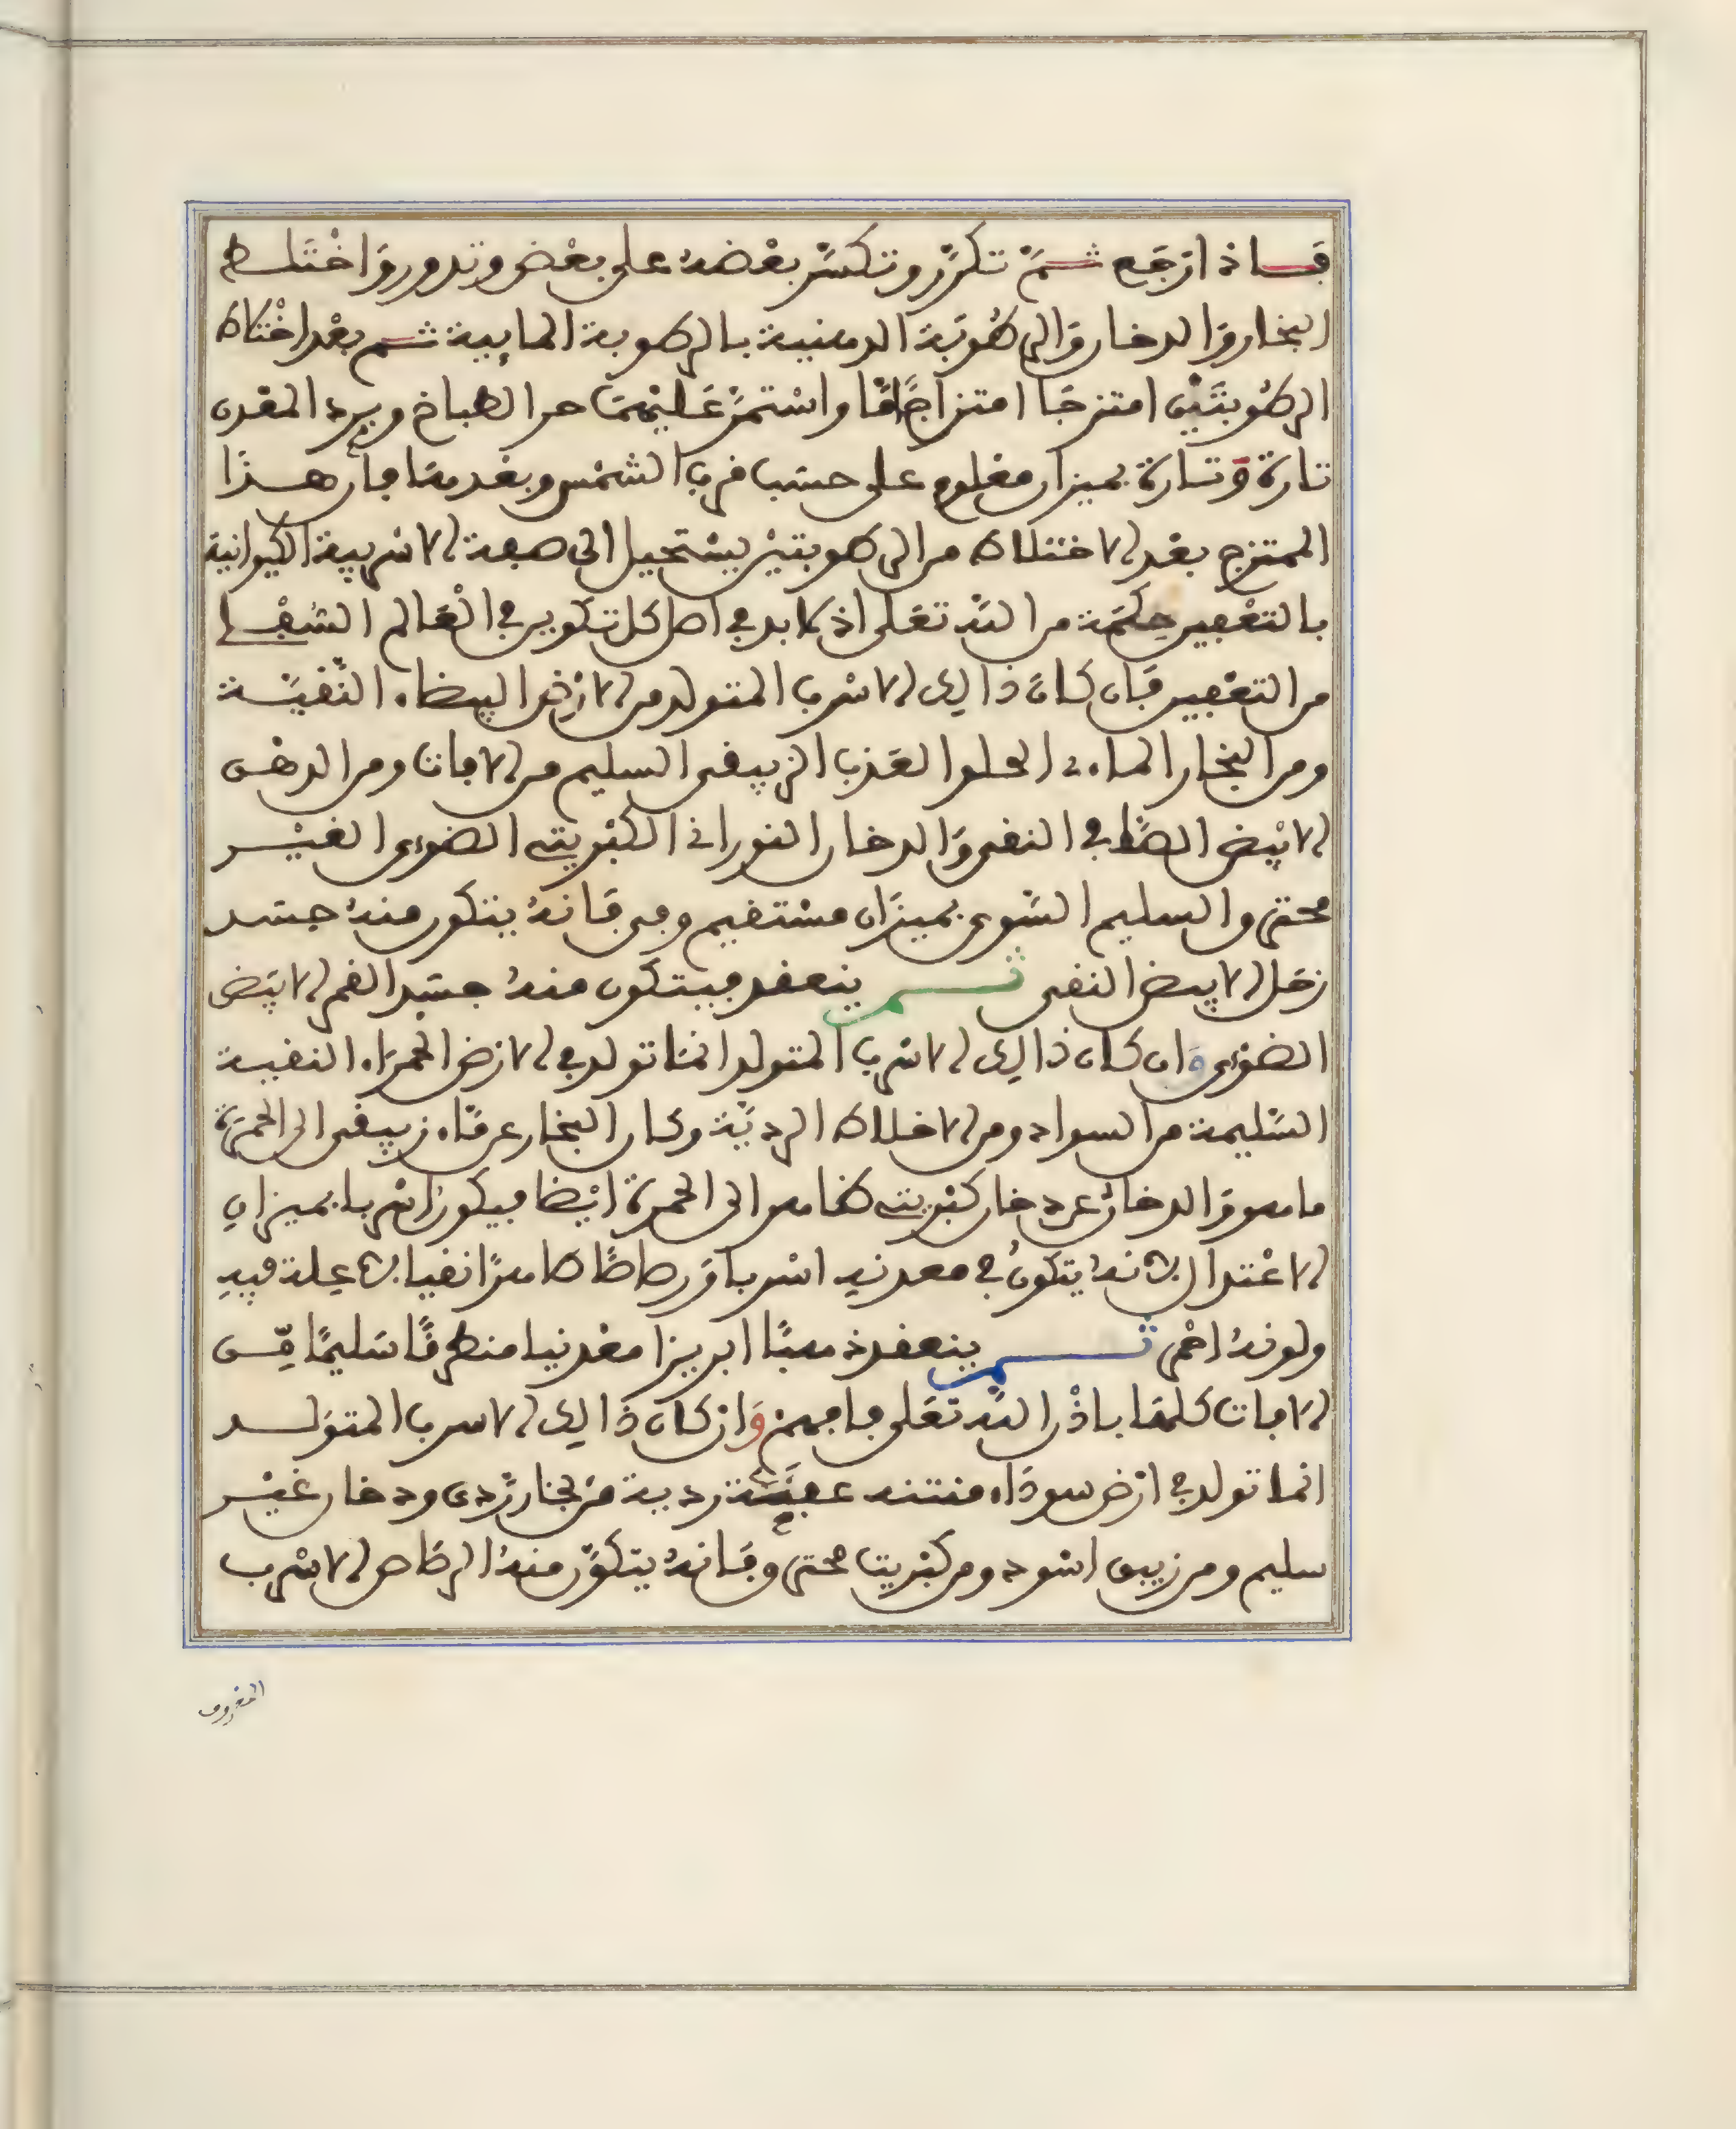 فاذا ارتفع ثم تكرر وتكسر بعضه على بعض وتدور واختلط
البخار والدخان والرطوبة الدهنية بالرطوبة المايية ثم بعد اختلاط
الرطوبتين امتزجا امتزاجا تاما واستمر عليهما حر الطباخ وبرد المعدن
تارة وتارة بميزان معلوم على حسب قرب الشمس وبعدها فان هذا
الممتزج بعد الاختلاط من الرطوبتين يستحيل الى صبغة الاسربية الكيوانية
بالتعفين حكمة من الله تعلى اذ لا بد في اصل كل تكوين في العالم السفلي
من التعفين فان كان ذالك الاسرب المتولد من الارض البيضاء النقية
ومن البخار الماءي الحلو العذب الزيبقى السليم من الافات ومن الدهن
الابيض الصافي النقي والدخان النوراني الكبريتي الضوءى الغير
محترق السليم السوي بميزان مستقيم وفي فانه يتكون منه جسد
زحل الابيض النقي ثم ينعقد فيتكون منه جسد القمر الابيض
الضوءى وان كان ذالك الاسرب المتولد انما تولد في الارض الحمراء النقية
السليمة من السواد ومن الاخلاط الردية وكان البخار عرقاء زيبقى الى الحمرة
ما هو والدخان عن دخان كبريتي طاهر الى الحمرة ايضا فيكون اسربا بميزان
الاعتدال فانه يتكون في معدنه اسربا ورصاصا طاهرا نقيا لا علة فيه
ولونه احمر ثم ينعقد ذهبا ابريزا معدنيا منطرقا سليما من
الافات كلها باذن الله تعلى فافهم وان كان ذالك الاسرب المتولد
انما تولد في ارض سوداء منتنه عفنة ردية من بخار ردى ودخان غير
سليم ومن زيبق اسود ومن كبريت محترق فانه يتكون منه الرصاص الاسرب
المعروف